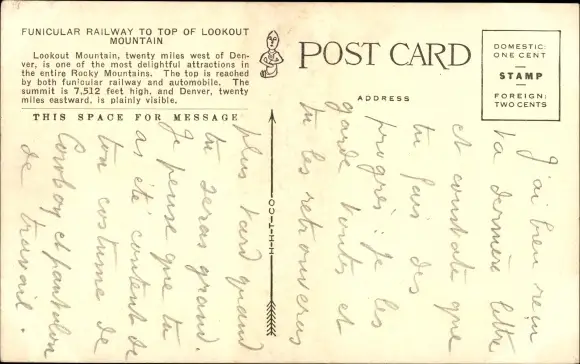 FUNICULAR RAILWAY TO TOP OF LOOKOUT
MOUNTAIN
Lookout Mountain, twenty miles west of Den-
ver, is one of the most delightful attractions in
the entire Rocky Mountains. The top is reached
by both funicular railway and automobile. The
summit is 7,512 feet high, and Denver, twenty
miles eastward, is plainly visible.
THIS SPACE FOR MESSAGE
H-H-T-CO.
POST CARD
ADDRESS
DOMESTIC:
ONE CENT
STAMP
FOREIGN:
TWO CENTS
J'ai bien reçu
ta dernière lettre
et constate que
tu fais des
progrès: Je les
garde toutes et
tu les retrouveras
plus tard quand
tu seras grand.
Je pense que tu
as été content de
ton costume de
Cowboy et pantalon
de travail.